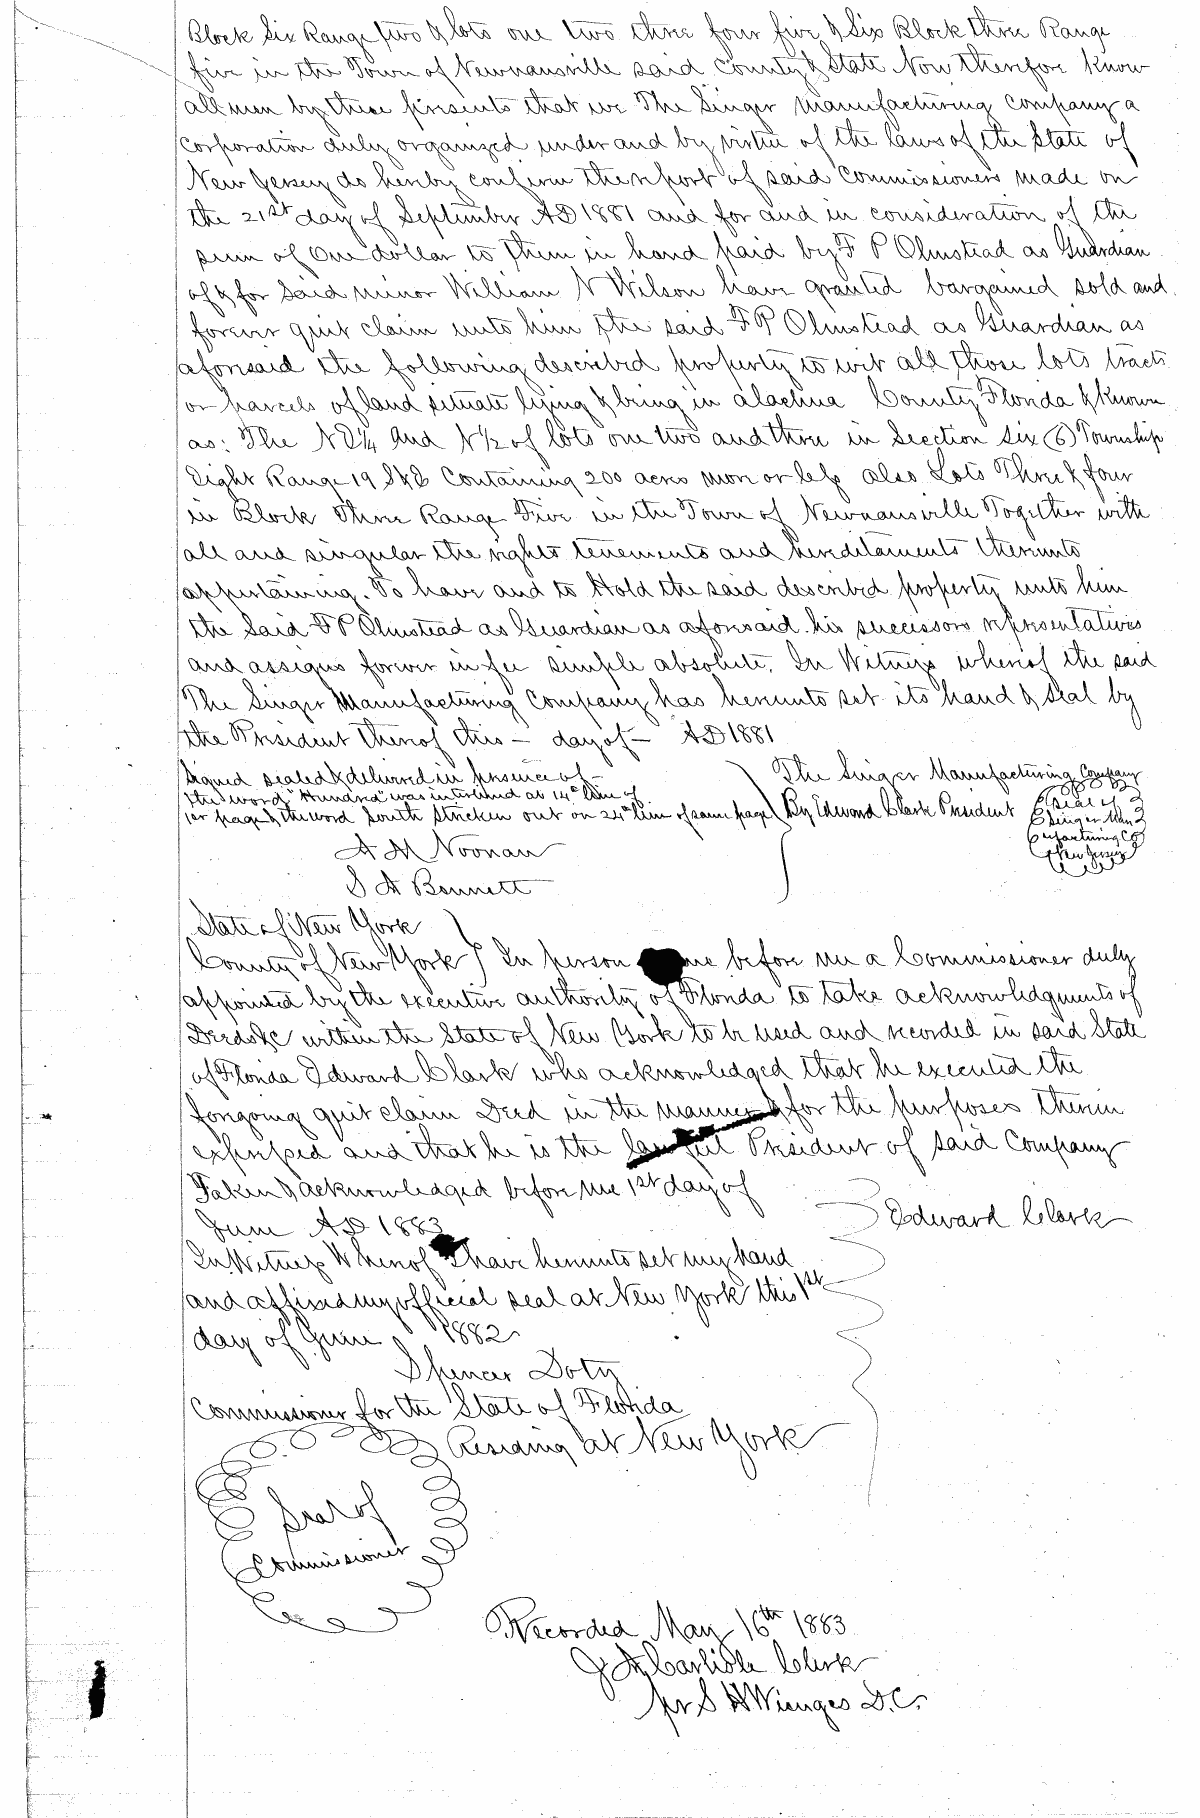 Block Six Range two & lots one two three four five & Six Block three Range
five in the Town of Newnansville said County & State Now therefore know
all men by these presents that we The Singer Manufacturing Company a
Corporation duly organized under and by virtue of the laws of the State of
New Jersey do hereby confirm the report of said Commissioners made on
the 21st day of September AD 1881 and for and in consideration of the
sum of One dollar to them in hand paid by F P Olmstead as Guardian
of & for said minor William N Wilson have granted bargained sold and
forever quit claim unto him the said F P Olmstead as Guardian as
aforesaid the following described property to wit all those lots tracts
or parcels of land situate lying & being in Alachua County Florida & known
as: The N E 1/4 and N 1/2 of lots one two and three in Section six (6) Township
Eight Range 19 S & E Containing 200 acres more or less also Lots Three & four
in Block Three Range Five in the Town of Newnansville Together with
all and singular the rights tenements and hereditaments thereunto
appertaining. To have and to Hold the said described property unto him
the Said F P Olmstead as Guardian as aforesaid his successors representatives
and assigns forever in fee simple absolute. In Witness whereof the said
The Singer Manufacturing Company has hereunto set its hand & seal by
the President thereof this — day of — AD 1881
Signed sealed & delivered in presence of —
The word "Hundred" was interlined at 14" line of
1er page & the word South stricken out on 24" line of same page
The Singer Manufacturing Company
By Edward Clark President
Seal of
Singer Man
ufacturing Co
New Jersey
A M Noonan
S A Bennett
State of New York
County of New York } In person me before me a Commissioner duly
appointed by the executive authority of Florida to take acknowledgments of
Deeds &c within the State of New York to be used and recorded in said State
of Florida Edward Clark who acknowledged that he executed the
foregoing quit claim Deed in the manner & for the purposes therein
expressed and that he is the lawful President of said Company
Taken & acknowledged before me 1st day of
June AD 1883
Edward Clark
In Witness Whereof I have hereunto set my hand
and affixed my official seal at New York this 1st
day of June 1882
Spencer Doty
Commissioner for the State of Florida
Residing at New York
Seal of
Commissioner
Recorded May 16th 1883
J A Carlisle Clerk
pr S H Wienges D.C.